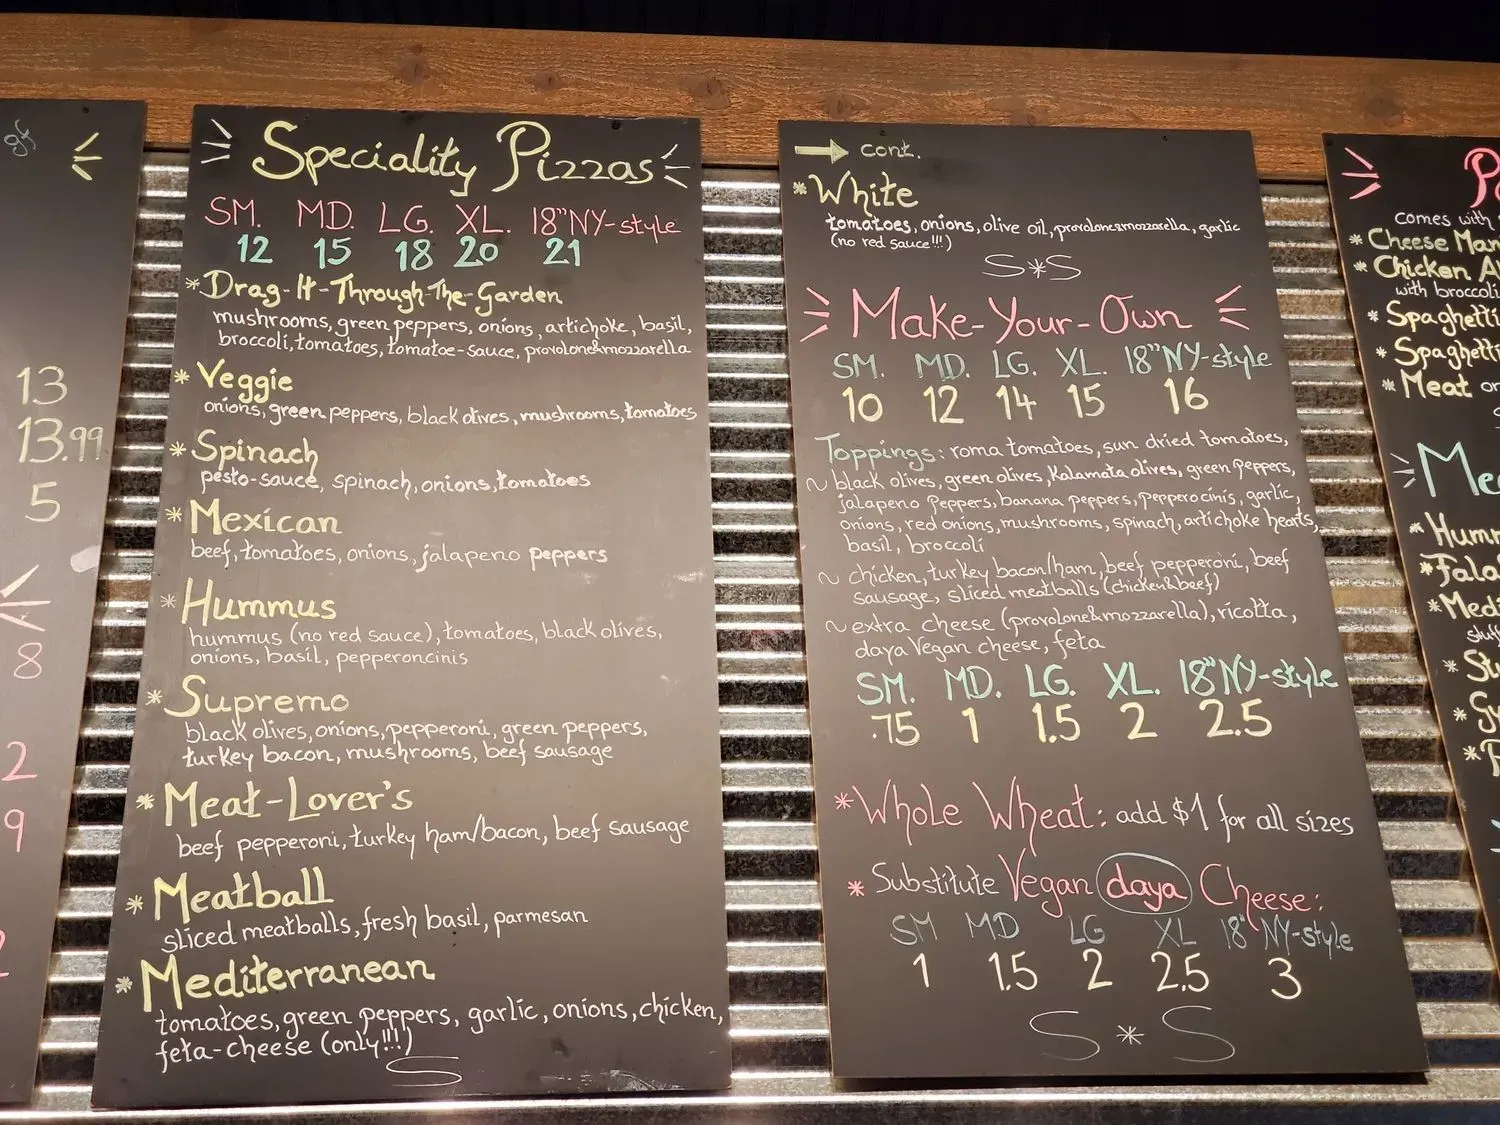 13
13.99
5
8
2
9
Speciality Pizzas
SM. MD. LG. XL. 18"NY-style
12 15 18 20 21
*Drag-It-Through-The-Garden
mushrooms, green peppers, onions, artichoke, basil,
broccoli, tomatoes, tomatoe-sauce, provolone&mozzarella
*Veggie
onions, green peppers, black olives, mushrooms, tomatoes
*Spinach
pesto-sauce, spinach, onions, tomatoes
*Mexican
beef, tomatoes, onions, jalapeno peppers
*Hummus
hummus (no red sauce), tomatoes, black olives,
onions, basil, pepperoncinis
*Supremo
black olives, onions, pepperoni, green peppers,
turkey bacon, mushrooms, beef sausage
*Meat-Lover's
beef pepperoni, turkey ham/bacon, beef sausage
*Meatball
sliced meatballs, fresh basil, parmesan
*Mediterranean
tomatoes, green peppers, garlic, onions, chicken,
feta-cheese (only!!!)
S
cont.
*White
tomatoes, onions, olive oil, provolone&mozzarella, garlic
(no red sauce!!!)
S*S
Make-Your-Own
SM. MD. LG. XL. 18"NY-style
10 12 14 15 16
Toppings: roma tomatoes, sun dried tomatoes,
~ black olives, green olives, Kalamata olives, green peppers,
jalapeno peppers, banana peppers, pepperocinis, garlic,
onions, red onions, mushrooms, spinach, artichoke hearts,
basil, broccoli
~ chicken, turkey bacon/ham, beef pepperoni, beef
sausage, sliced meatballs (chicken&beef)
~ extra cheese (provolone&mozzarella), ricotta,
daya Vegan cheese, feta
SM. MD. LG. XL. 18"NY-style
.75 1 1.5 2 2.5
*Whole Wheat: add $1 for all sizes
*Substitute Vegan daya Cheese:
SM MD LG XL 18"NY-style
1 1.5 2 2.5 3
S*S
comes with
*Cheese Man
*Chicken Al
with broccoli
*Spaghetti
*Spaghetti
*Meat or
Me
*Humm
*Fala
*Medi